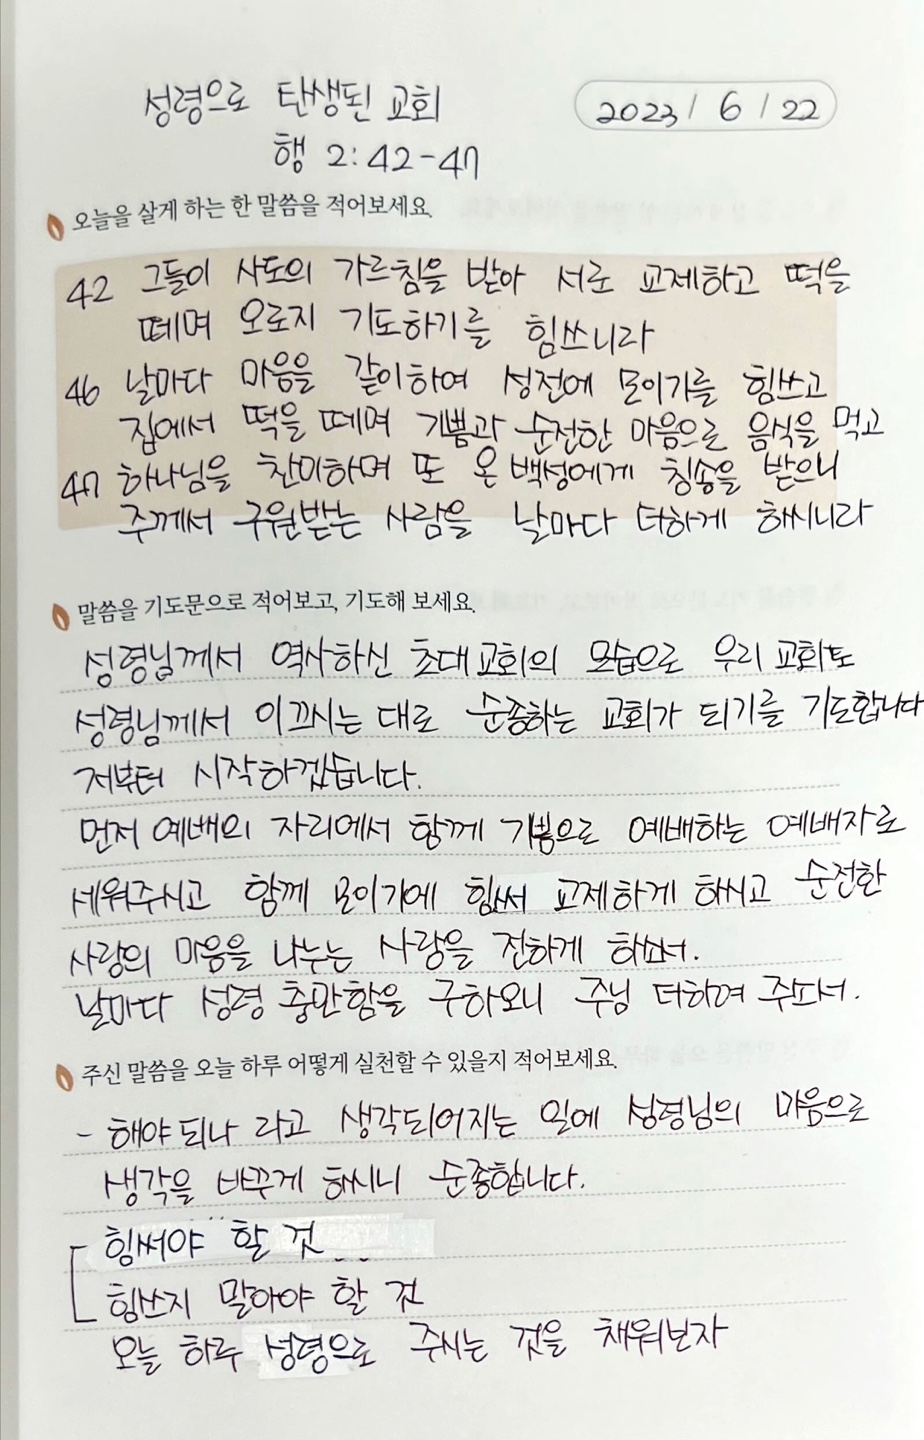 성령으로 탄생된 교회
2023 / 6 / 22
행 2:42-47
오늘을 살게 하는 한 말씀을 적어보세요.
42 그들이 사도의 가르침을 받아 서로 교제하고 떡을
떼며 오로지 기도하기를 힘쓰니라
46 날마다 마음을 같이하여 성전에 모이기를 힘쓰고
집에서 떡을 떼며 기쁨과 순전한 마음으로 음식을 먹고
47 하나님을 찬미하며 또 온 백성에게 칭송을 받으니
주께서 구원받는 사람을 날마다 더하게 하시니라
말씀을 기도문으로 적어보고, 기도해 보세요.
성령님께서 역사하신 초대교회의 모습으로 우리 교회도
성령님께서 이끄시는 대로 순종하는 교회가 되기를 기도합니다
저부터 시작하겠습니다.
먼저 예배의 자리에서 함께 기쁨으로 예배하는 예배자로
세워주시고 함께 모이기에 힘써 교제하게 하시고 순전한
사랑의 마음을 나누는 사랑을 전하게 하소서.
날마다 성령 충만함을 구하오니 주님 더하여 주소서.
주신 말씀을 오늘 하루 어떻게 실천할 수 있을지 적어보세요.
- 해야 되나 라고 생각되어지는 일에 성령님의 마음으로
생각을 바꾸게 하시니 순종합니다.
힘써야 할 것
힘쓰지 말아야 할 것
오늘 하루 성령으로 주시는 것을 채워보자